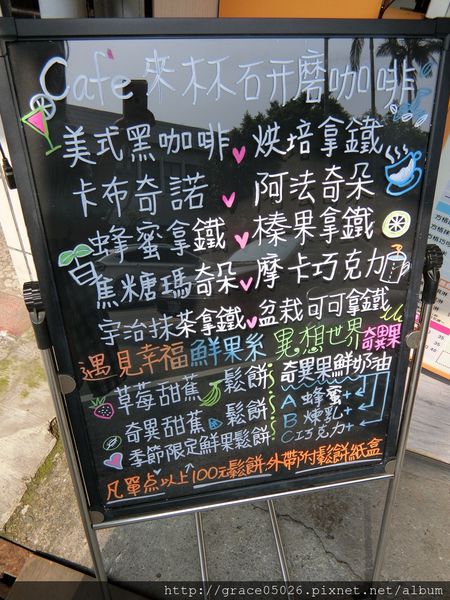 Cafe 來杯石研磨咖啡
美式黑咖啡 烘培拿鐵
卡布奇諾 阿法奇朵
蜂蜜拿鐵 榛果拿鐵
焦糖瑪奇朵 摩卡巧克力
宇治抹茶拿鐵 盆栽可可拿鐵
遇見幸福鮮果系 異想世界奇異果
草莓甜蕉鬆餅 奇異果鮮奶油
奇異甜蕉鬆餅 A 蜂蜜+
季節限定鮮果鬆餅 B 煉乳+
C 巧克力+
凡單点以上100元鬆餅外帶附鬆餅紙盒
http://grace05026.pixnet.net/album